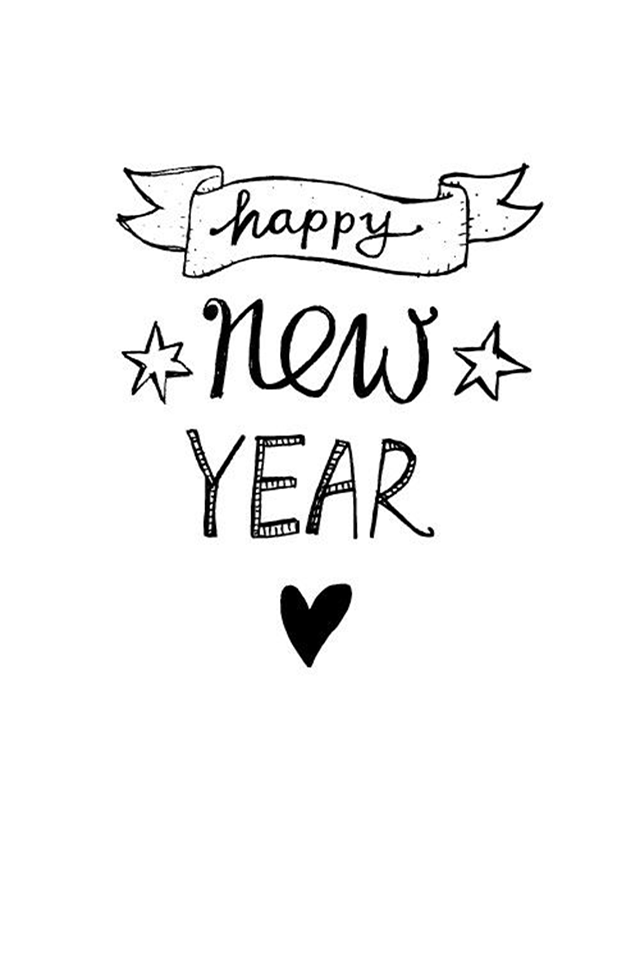 happy
new
YEAR